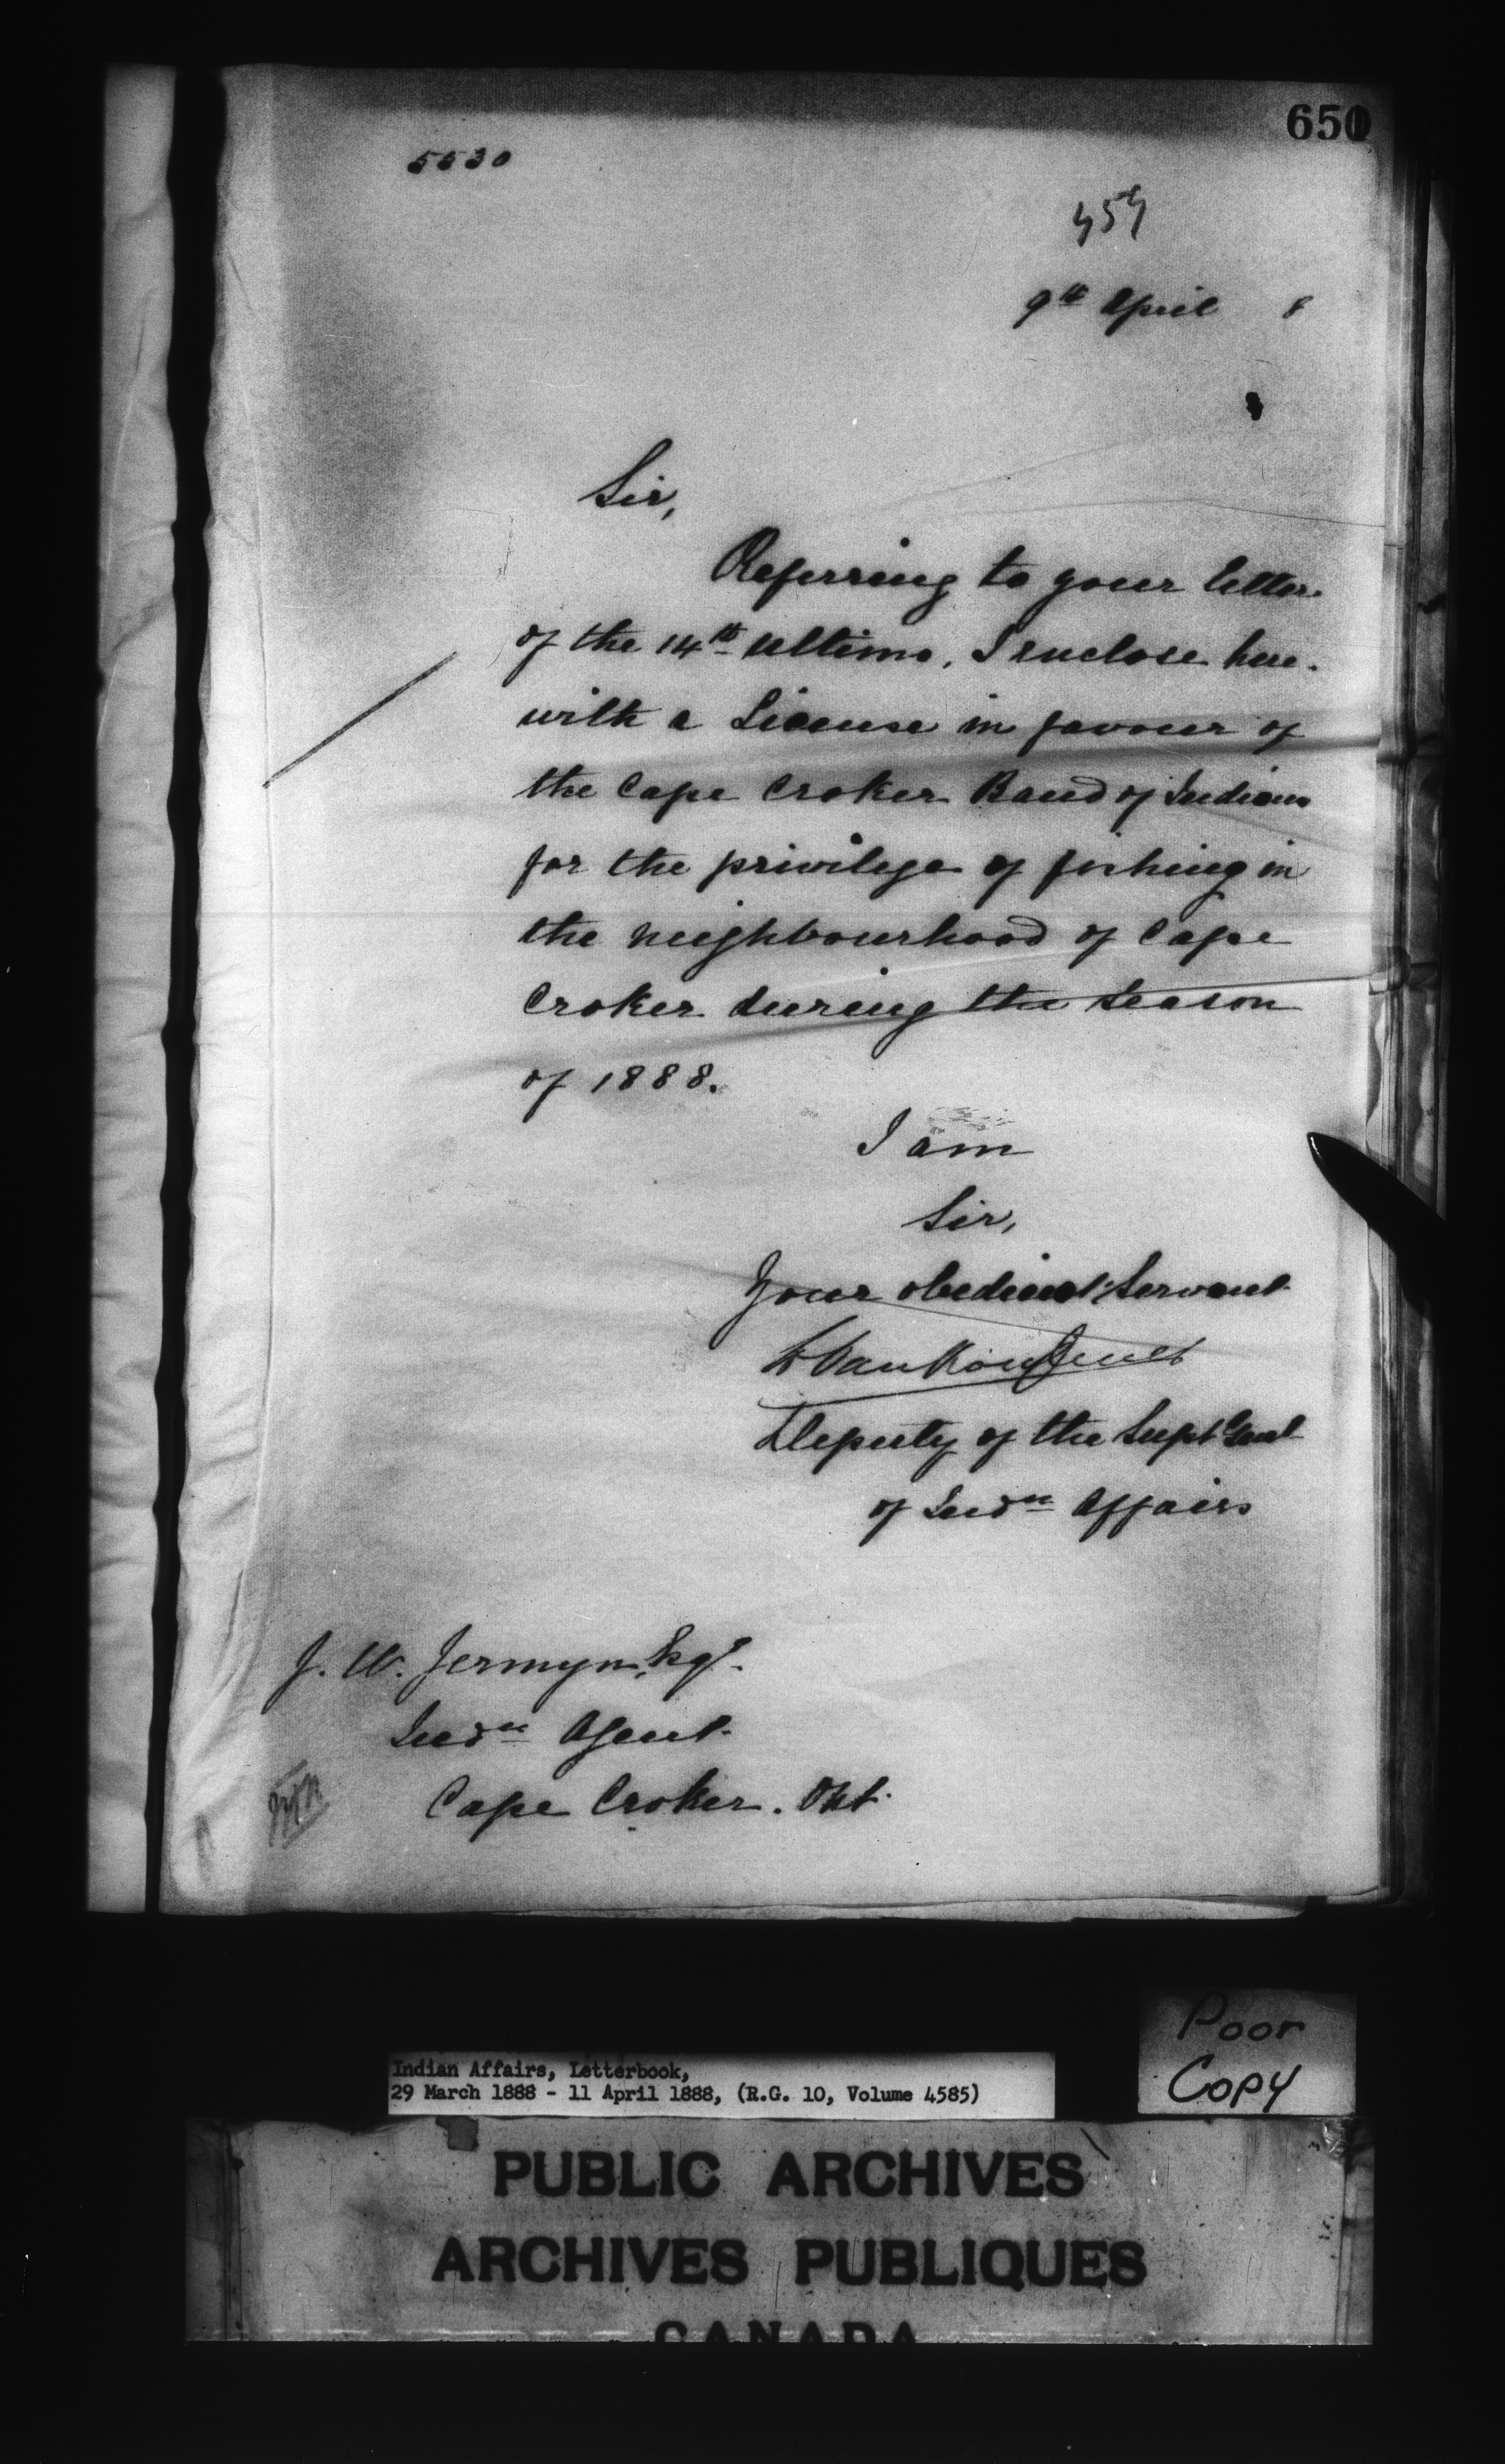 650
5530
9th April 8
Sir,
Referring to your letter
of the 14th ultimo, I enclose here-
with a License in favour of
the Cape Croker Band of Indians
for the privilege of fishing in
the neighbourhood of Cape
Croker during the Season
of 1888.
I am
Sir,
Your obedient Servant
L Vankoughnet
Deputy of the Supt Genl
of Indn Affairs
J. W. Jermyn, Esqr.
Indn Agent
Cape Croker. Ont.
Poor
Copy
Indian Affairs, Letterbook,
29 March 1888 - 11 April 1888, (R.G. 10, Volume 4585)
PUBLIC ARCHIVES
ARCHIVES PUBLIQUES
CANADA